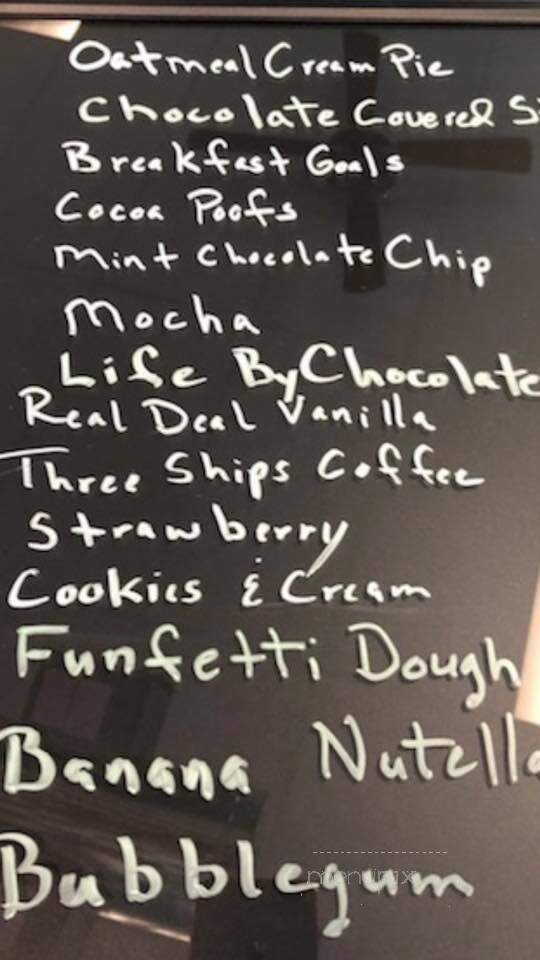 Oatmeal Cream Pie
Chocolate Covered S
Breakfast Goals
Cocoa Poofs
Mint Chocolate Chip
Mocha
Life By Chocolate
Real Deal Vanilla
Three Ships Coffee
Strawberry
Cookies & Cream
Funfetti Dough
Banana Nutella
Bubblegum
menupix